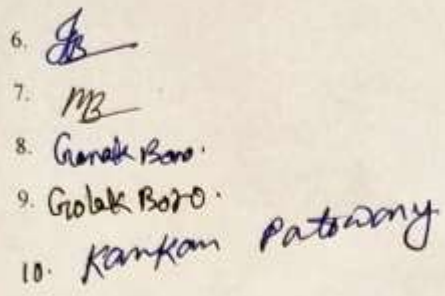 6. JB
7. MB
8. Ganak Boro.
9. Golak Boro.
10. Kankan Patowary